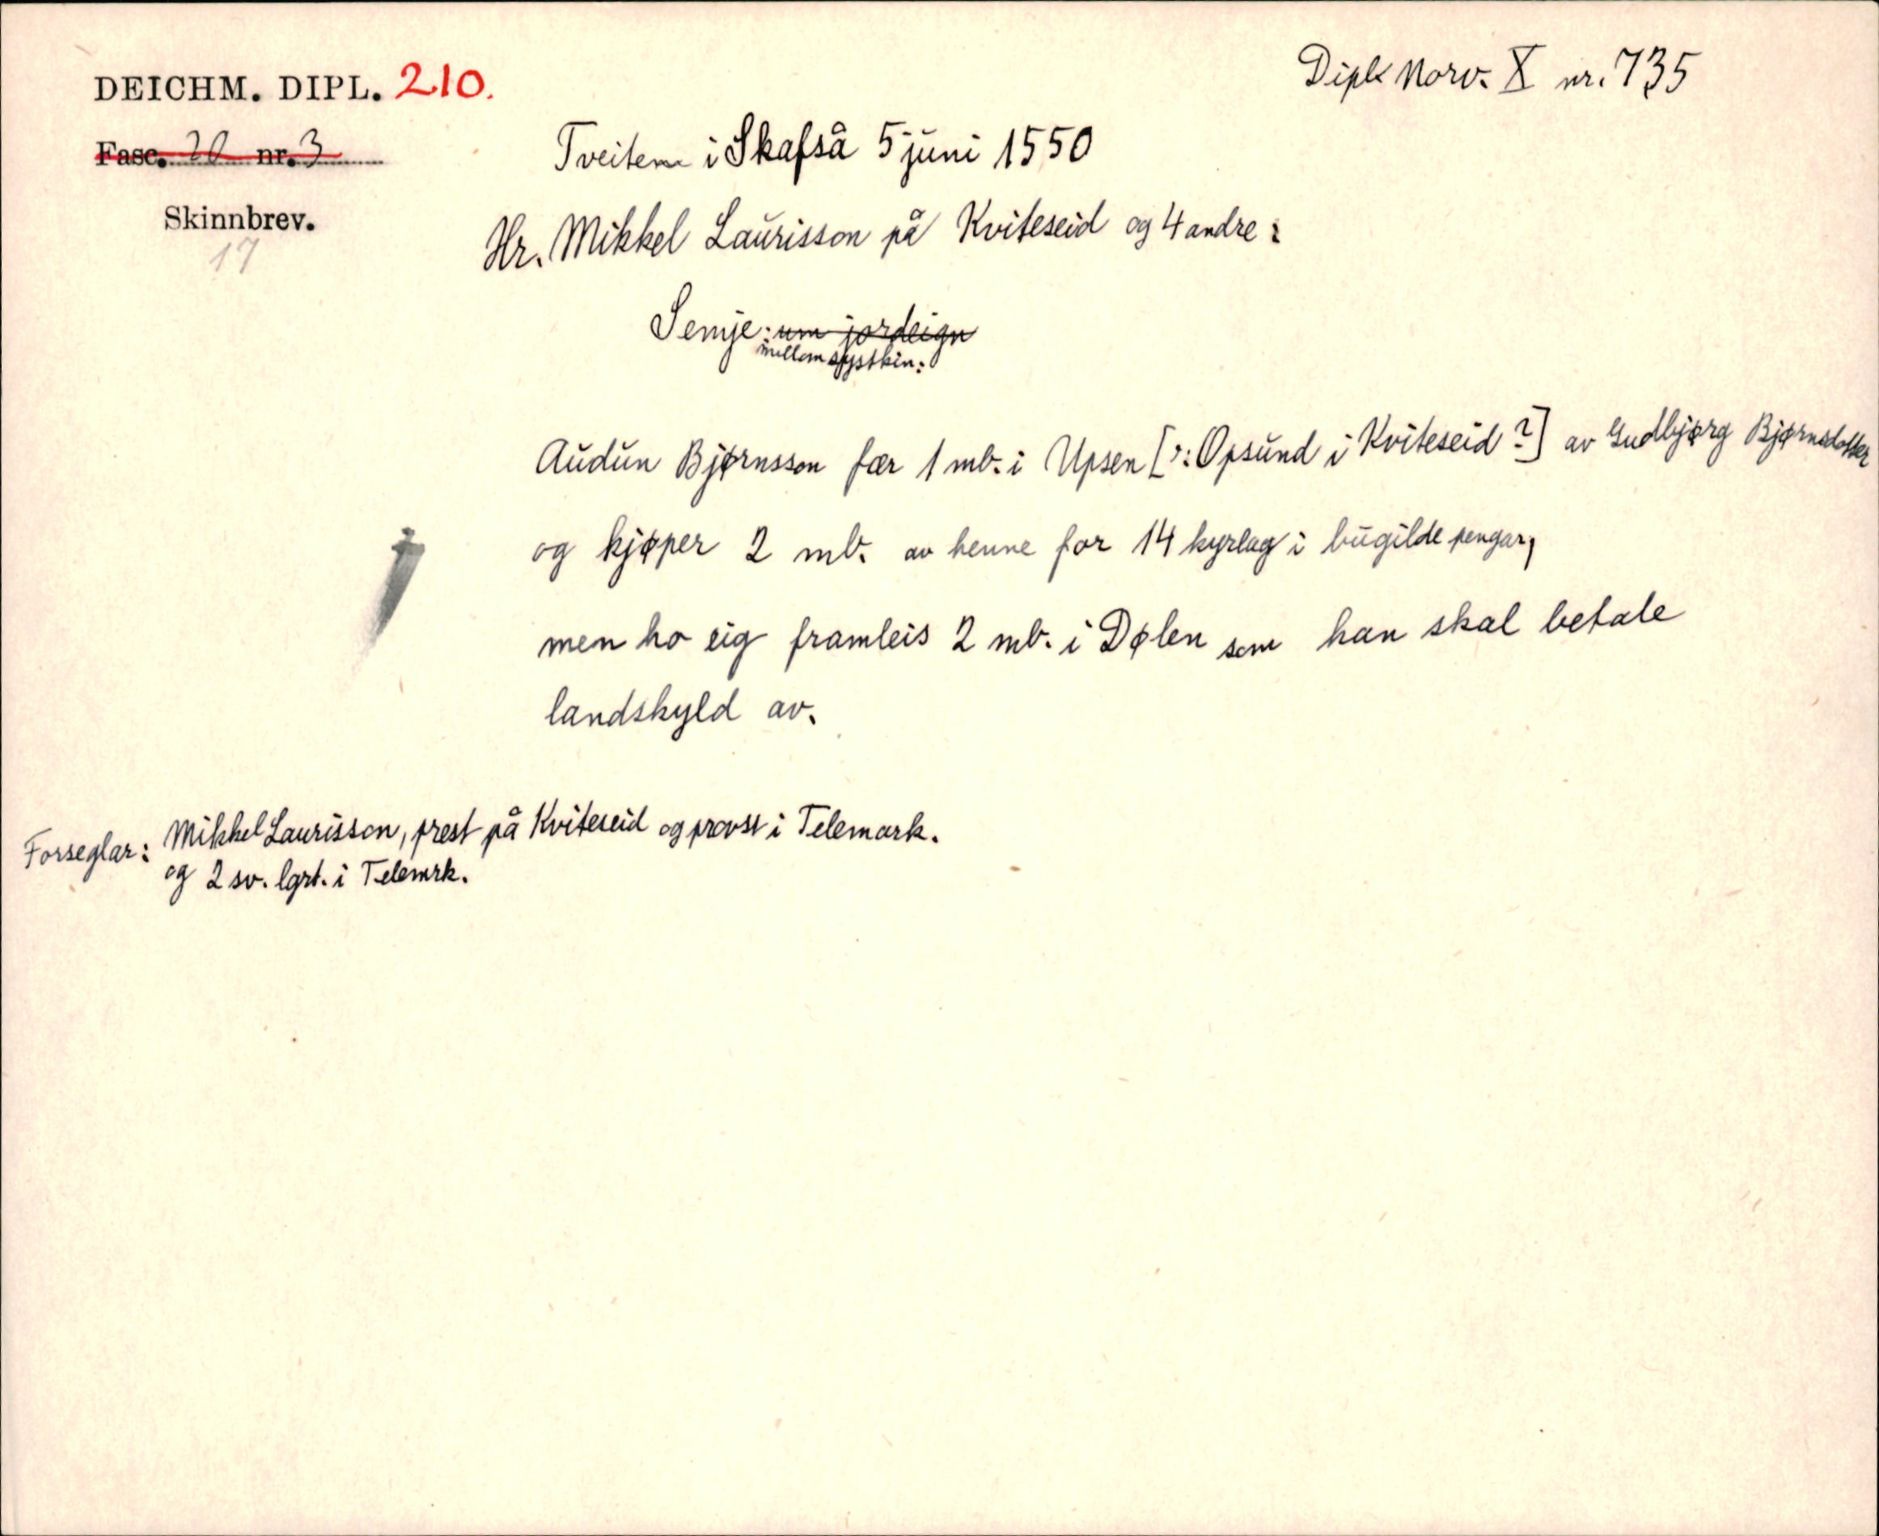 DEICHM. DIPL. 210.
Dipl. Norv. X nr. 735
Fasc. 20 nr. 3
Skinnbrev.
17
Tveitene i Skafså 5 juni 1550
Hr. Mikkel Laurisson på Kviteseid og 4 andre:
Semje: um jordeign
millom systkin:
Audun Bjørnsson fær 1 mb. i Upsen [ɔ: Opsund i Kviteseid?] av Gudbjørg Bjørnsdotter
og kjøper 2 mb. av henne for 14 kyrlag i bugilde pengar,
men ho eig framleis 2 mb. i Dølen som han skal betale
landskyld av.
Forseglar: Mikkel Laurisson, prest på Kviteseid og provst i Telemark.
og 2 sv. lgrt. i Telemrk.